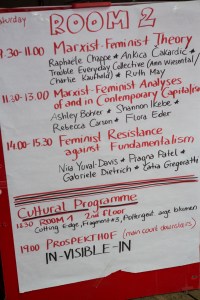 Saturday
ROOM 2
9.30-11.00 Marxist-Feminist Theory
Raphaele Chappe * Ankica Čakardić *
Trouble Everyday Collective (Ann Wiesental/
Charlie Kaufhold) * Ruth May
11.30-13.00 Marxist-Feminist Analyses
of and in Contemporary Capitalism
Ashley Bohrer * Shannon Ikebe *
Rebecca Carson * Flora Eder
14.00-15.30 Feminist Resistance
against Fundamentalism
Nira Yuval-Davis * Pragna Patel *
Gabriele Dietrich * Katia Gregoratti
Cultural Programme
ROOM 1 2nd FLOOR
Cutting Edge, Fragment #3,
19.00 PROSPEKTHOF (main court downstairs)
IN-VISIBLE-IN